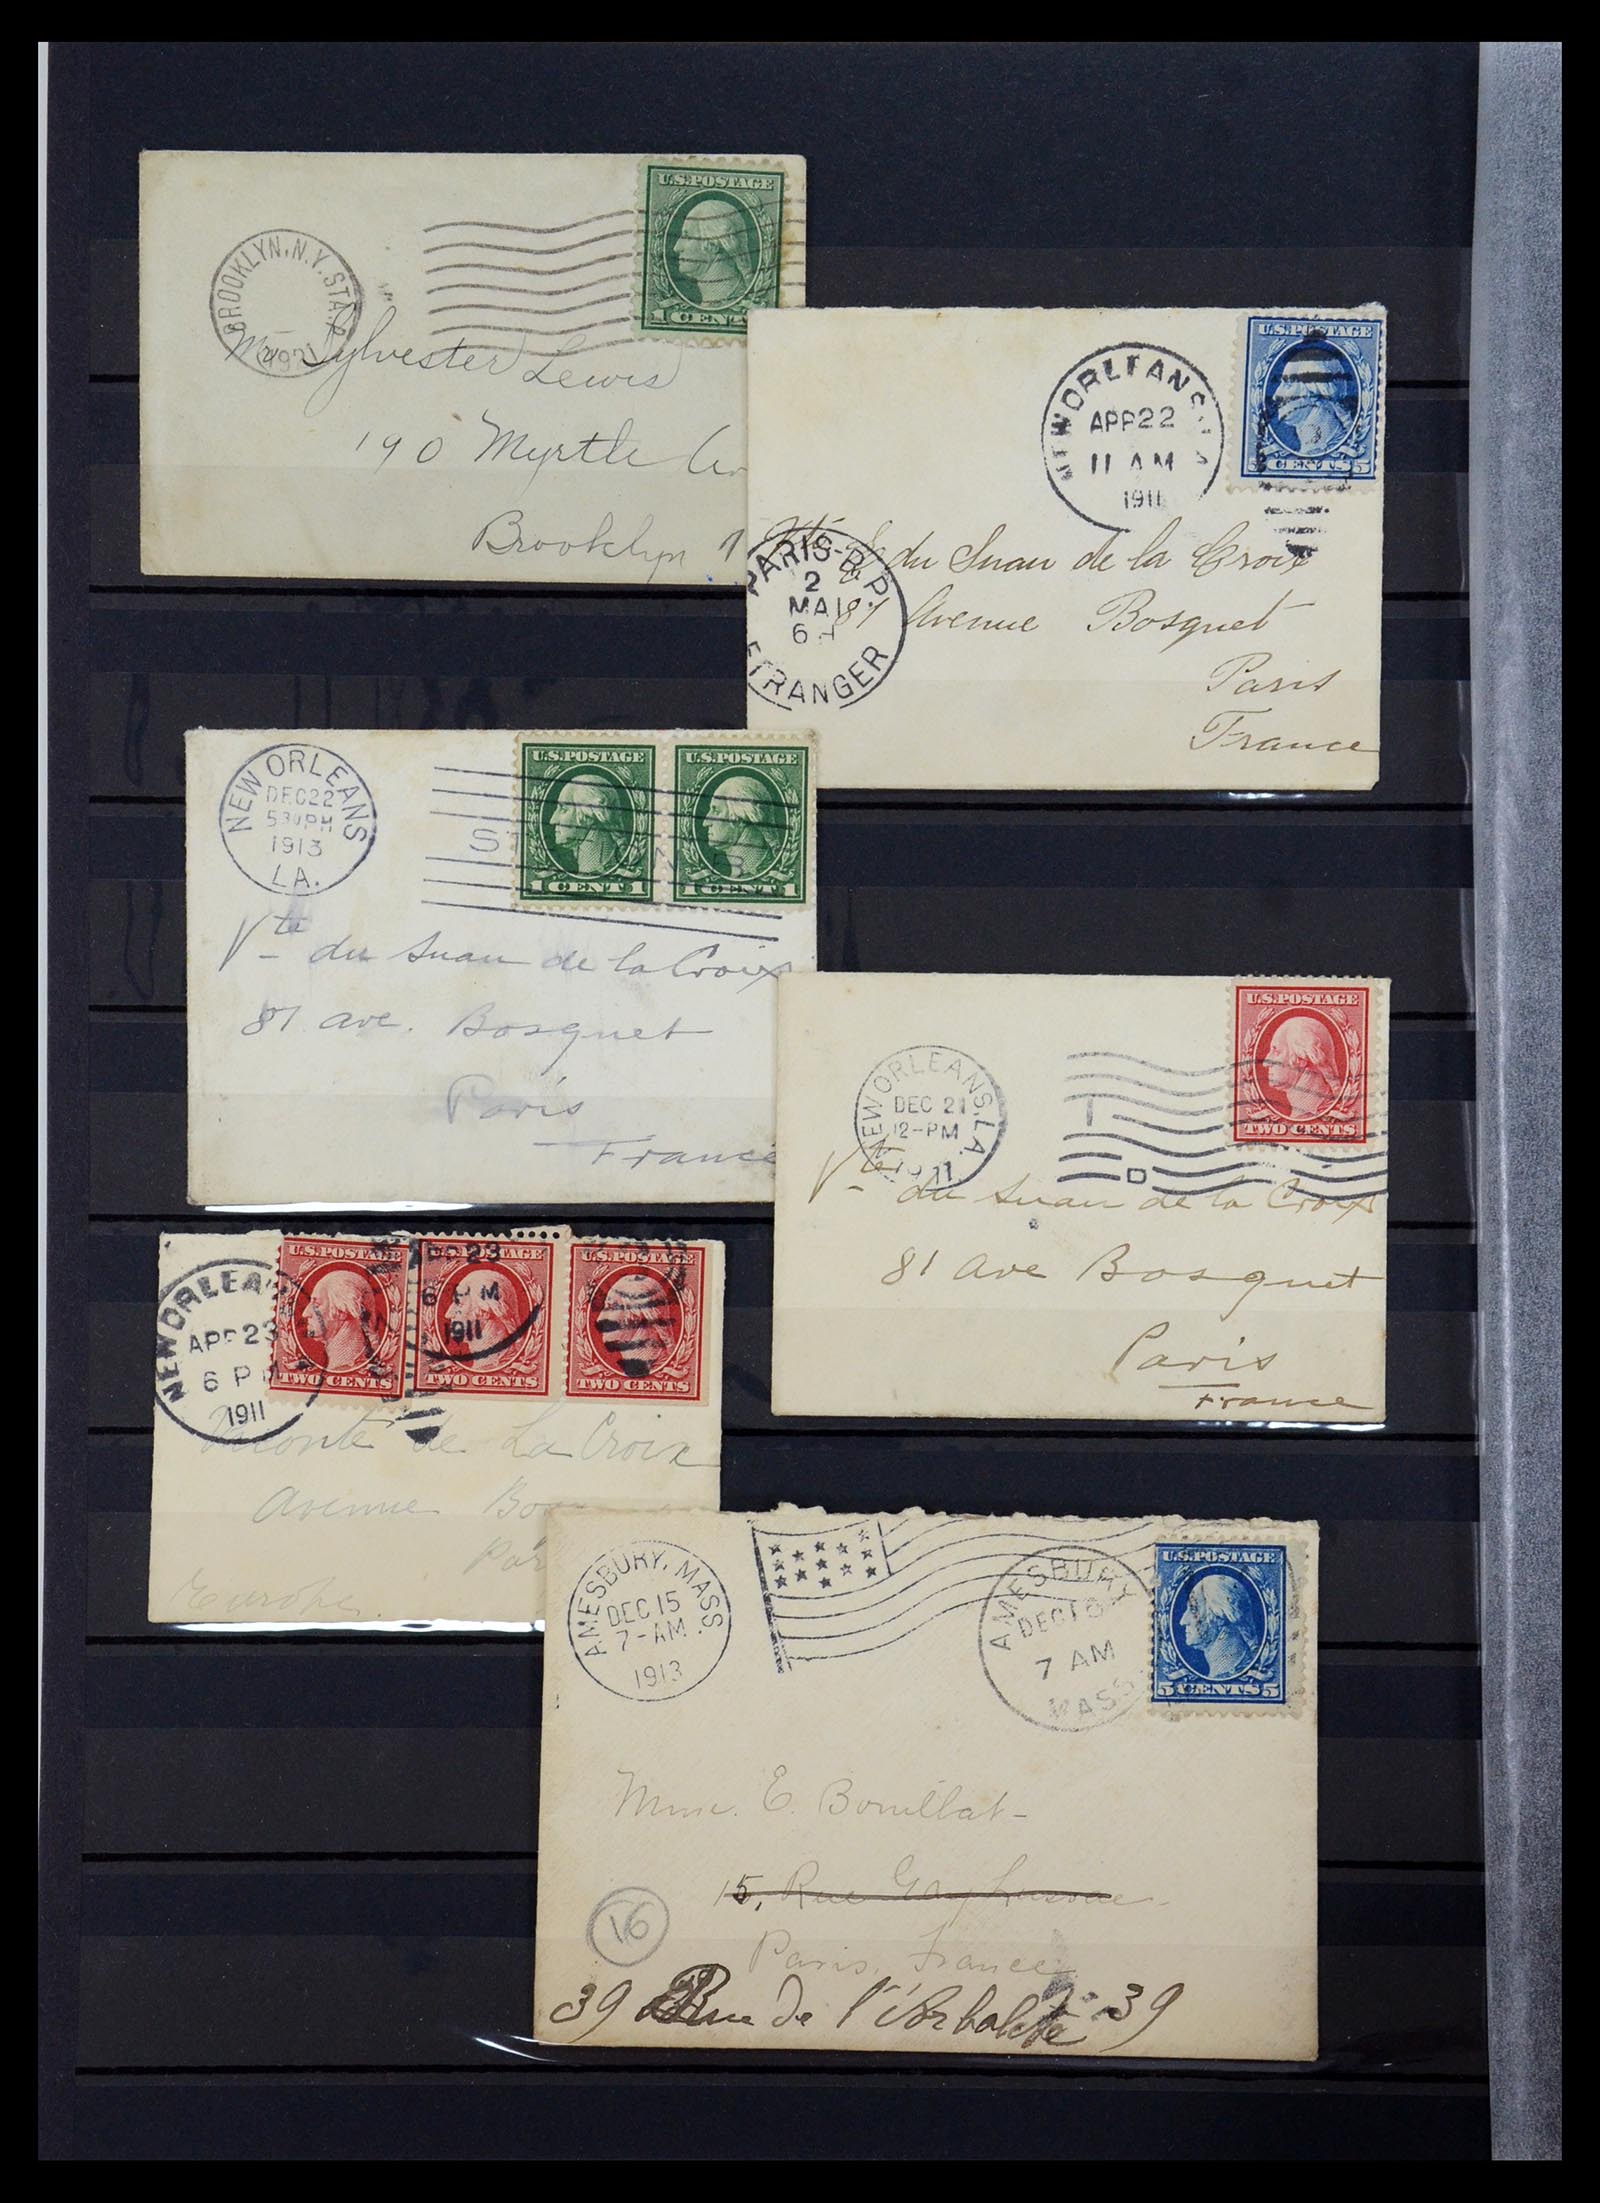 U.S.POSTAGE
1 CENT
BROOKLYN, N.Y. STA.
Mr Sylvester Lewis
190 Myrtle
Brooklyn
U.S.POSTAGE
5 CENTS 5
NEW ORLEANS
APR 22
11 AM
1911
PARIS-B.P.
2
MAI
6
ETRANGER
du Suau de la Croix
81 Avenue Bosquet
Paris
France
U.S.POSTAGE U.S.POSTAGE
1 CENT 1 1 CENT 1
NEW ORLEANS
DEC 22
5 30 PM
1913
LA.
Vte du Suau de la Croix
81 ave. Bosquet
Paris
France
U.S.POSTAGE
TWO CENTS
NEW ORLEANS, LA.
DEC 21
12-PM
1911
Vte du Suau de la Croix
81 Ave Bosquet
Paris
France
U.S.POSTAGE
TWO CENTS TWO CENTS TWO CENTS
NEW ORLEANS
APR 23
6 PM
1911
APR 23
6 PM
1911
de La Croix
Avenue
Europe
AMESBURY, MASS.
DEC 15
7-AM
1913
AMESBURY
DEC
7 AM
MASS
U.S.POSTAGE
5 CENTS 5
Mme. E. Bouillat
15, Rue Gay Lussac
Paris, France
16
39 Rue de l'Arbalète 39